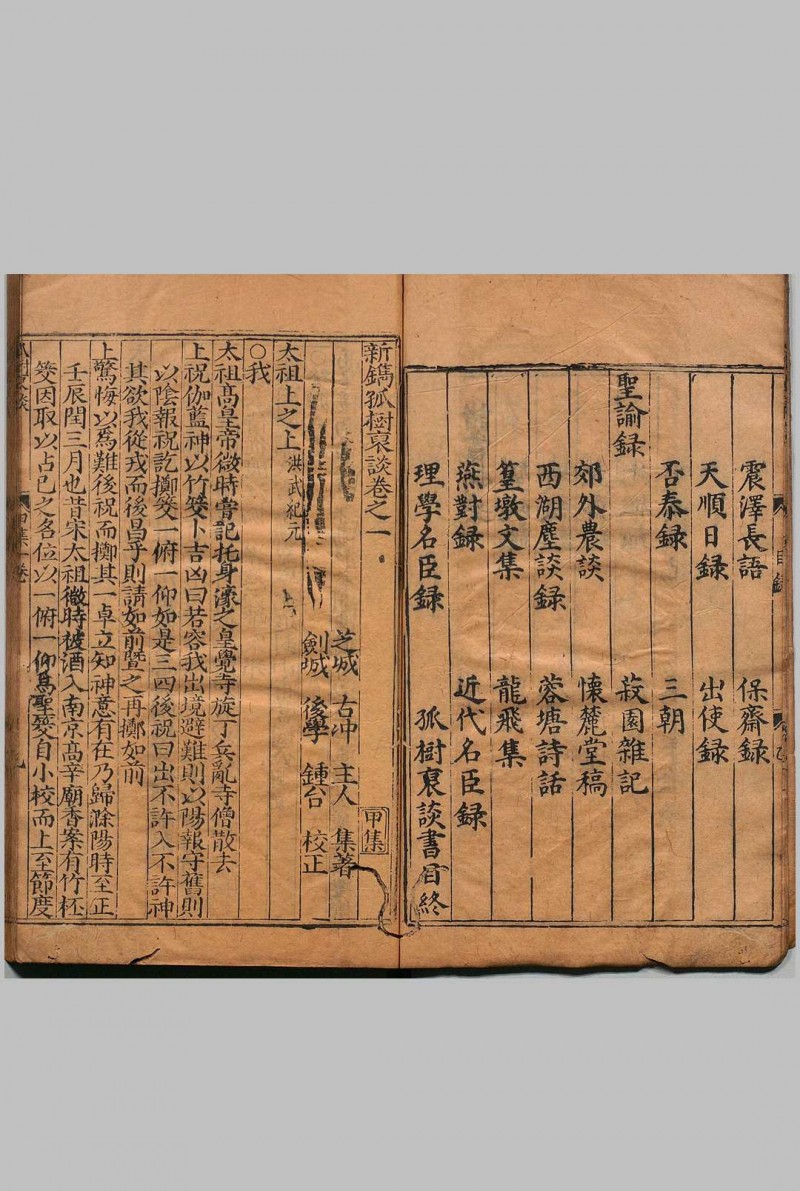 震澤長語　保齋録
天順日録　出使録
否泰録　三朝
聖諭録　菽園雜記
郊外農談　懐麓堂稿
西湖塵談録　蓉塘詩話
篁墩文集　龍飛集
燕對録　近代名臣録
理學名臣録　孤樹裒談書目終
新鐫孤樹裒談卷之一　甲集
芝城　古冲　主人　集著
劍城　後學　鍾台　校正
太祖上之上　洪武紀元
○我
太祖髙皇帝微時嘗託托身濠之皇覺寺旋丁兵亂寺僧散去
上祝伽藍神以竹筊卜吉凶曰若容我出境避難則以陽報守舊則
以陰報祝訖擲筊一俯一仰如是三四後祝曰出不許入不許神
其欲我從戎而後昌乎則請如前曁之再擲如前
上驚悔以爲難後祝而擲其一卓立知神意有在乃歸滁陽時至正
壬辰閏三月也昔宋太祖微時被酒入南京髙辛廟香案有竹柸
筊因取以占已之名位以一俯一仰爲聖筊自小校而上至節度